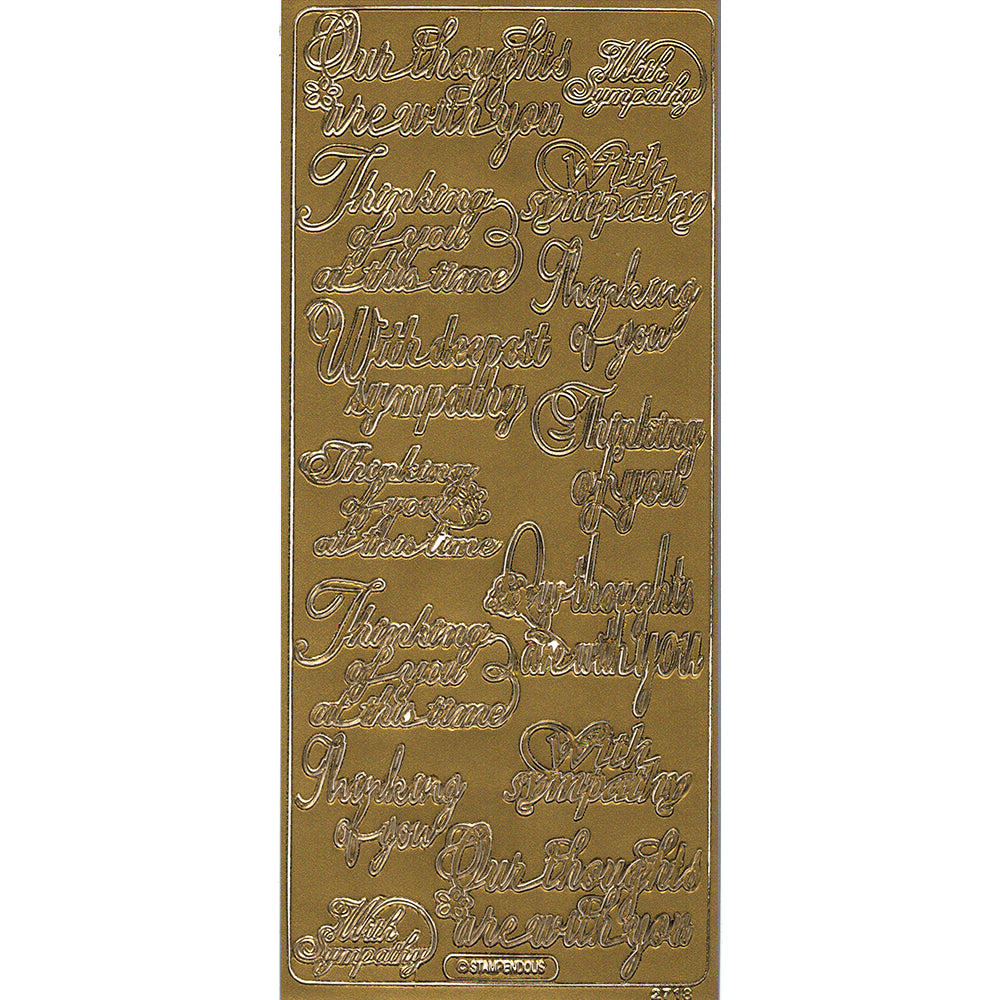 Our thoughts
are with you
With
Sympathy
Thinking
of you
at this time
With
sympathy
Thinking
of you
With deepest
sympathy
Thinking
of you
Thinking
of you
at this time
Our thoughts
are with you
Thinking
of you
at this time
With
sympathy
Thinking
of you
Our thoughts
are with you
With
Sympathy
© STAMPENDOUS
2718